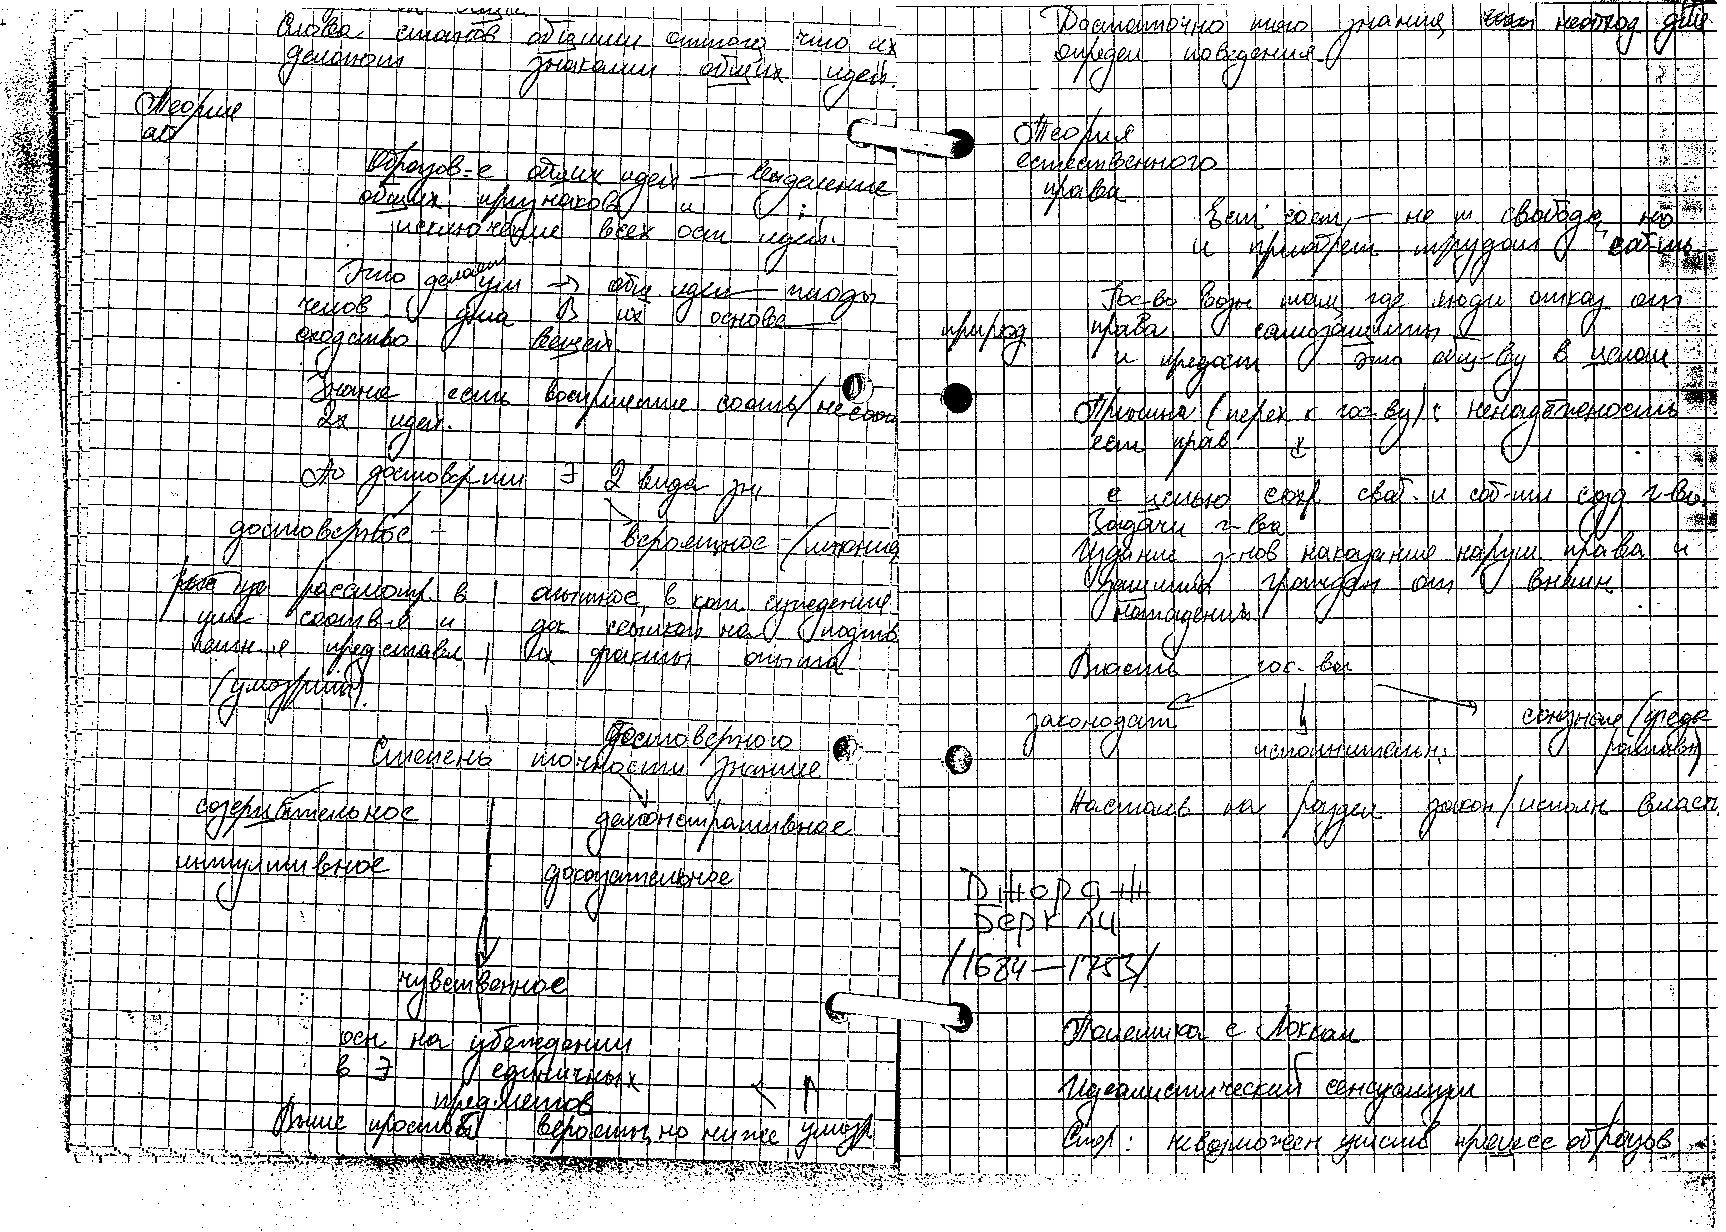 Слова станов общими оттого что их
делают знаками общих идей.
Теория
аб
Образов-е общих идей — выделение
общих признаков и
исключение всех ост идей.
Это делает ум → общ идеи — плоды
челов
В их основе —
сходство вещей
Знание есть восприятие соотв/несоотв
2х идей.
По достоверн Ǝ 2 вида зн
достоверное —
вероятное —
рассмотр в
уме соотв-я и
представл
(умозрит).
опытное, в кот суждение
док ссылкой на подтв
их факты опыта
Степень точности достоверного знание
созерцательное
интуитивное
демонстративное
доказательное
чувственное
осн на убеждении
в Ǝ единичных
предметов
Выше простой вероятн, но ниже умозр
Достаточно того знания, необход для
определ поведения
Теория
естественного
права
Ест сост — не т свобода, но
и приобрет трудом соб-ть
Гос-во возн там, где люди отказ от
природ права самозащиты
и предост это общ-ву в целом
Причина (перех к гос-ву): ненадёжность
ест прав
с целью сохр своб- и соб-ти созд г-во.
Задачи г-ва
Издание з-нов наказание наруш права и
защита граждан от внешн
нападений
Власть гос-ва
законодат
исполнительн.
союзная
Настаив на раздел закон/исполн власт
Джордж
Беркли
/1684—1753/
Полемика с Локком
Идеалистический сенсуализм
Спор: невозможен умств процесс образов